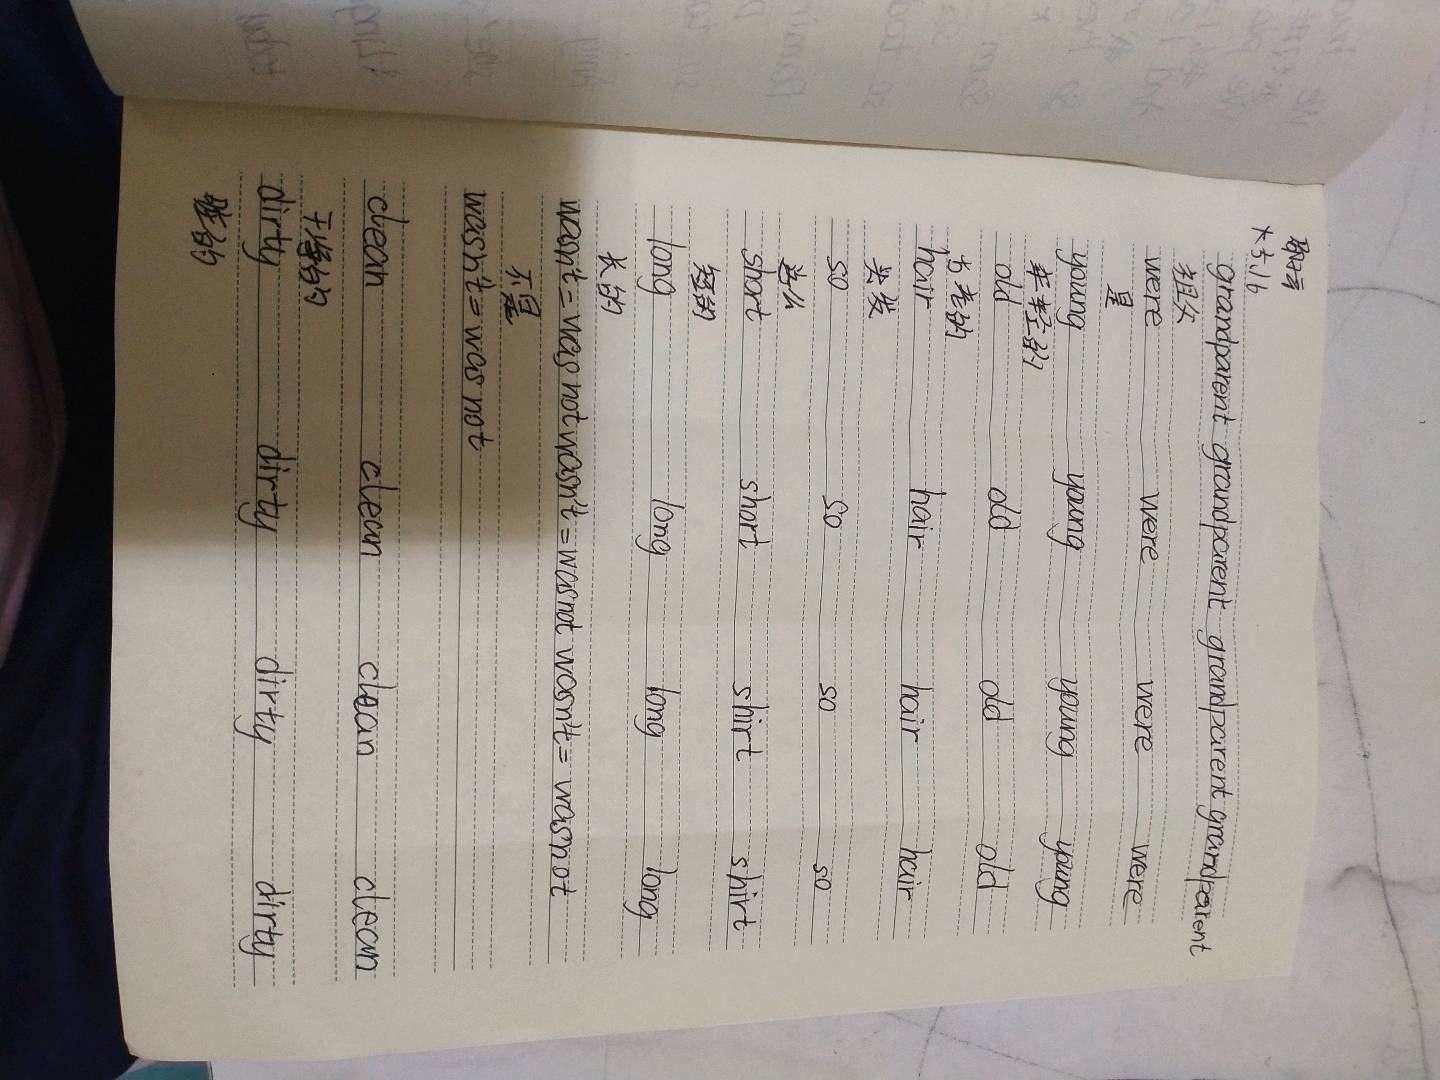 grandparent grandparent grandparent grandparent
祖父
were were were were
是
young young young young
年轻的
old old old old
古老的
hair hair hair hair
头发
so so so so
怎么
short short shirt shirt
短的
long long long long
长的
wasn't = was not wasn't = was not wasn't = was not
不是
wash't = was not
clean clean clean clean
干净的
dirty dirty dirty dirty
脏的